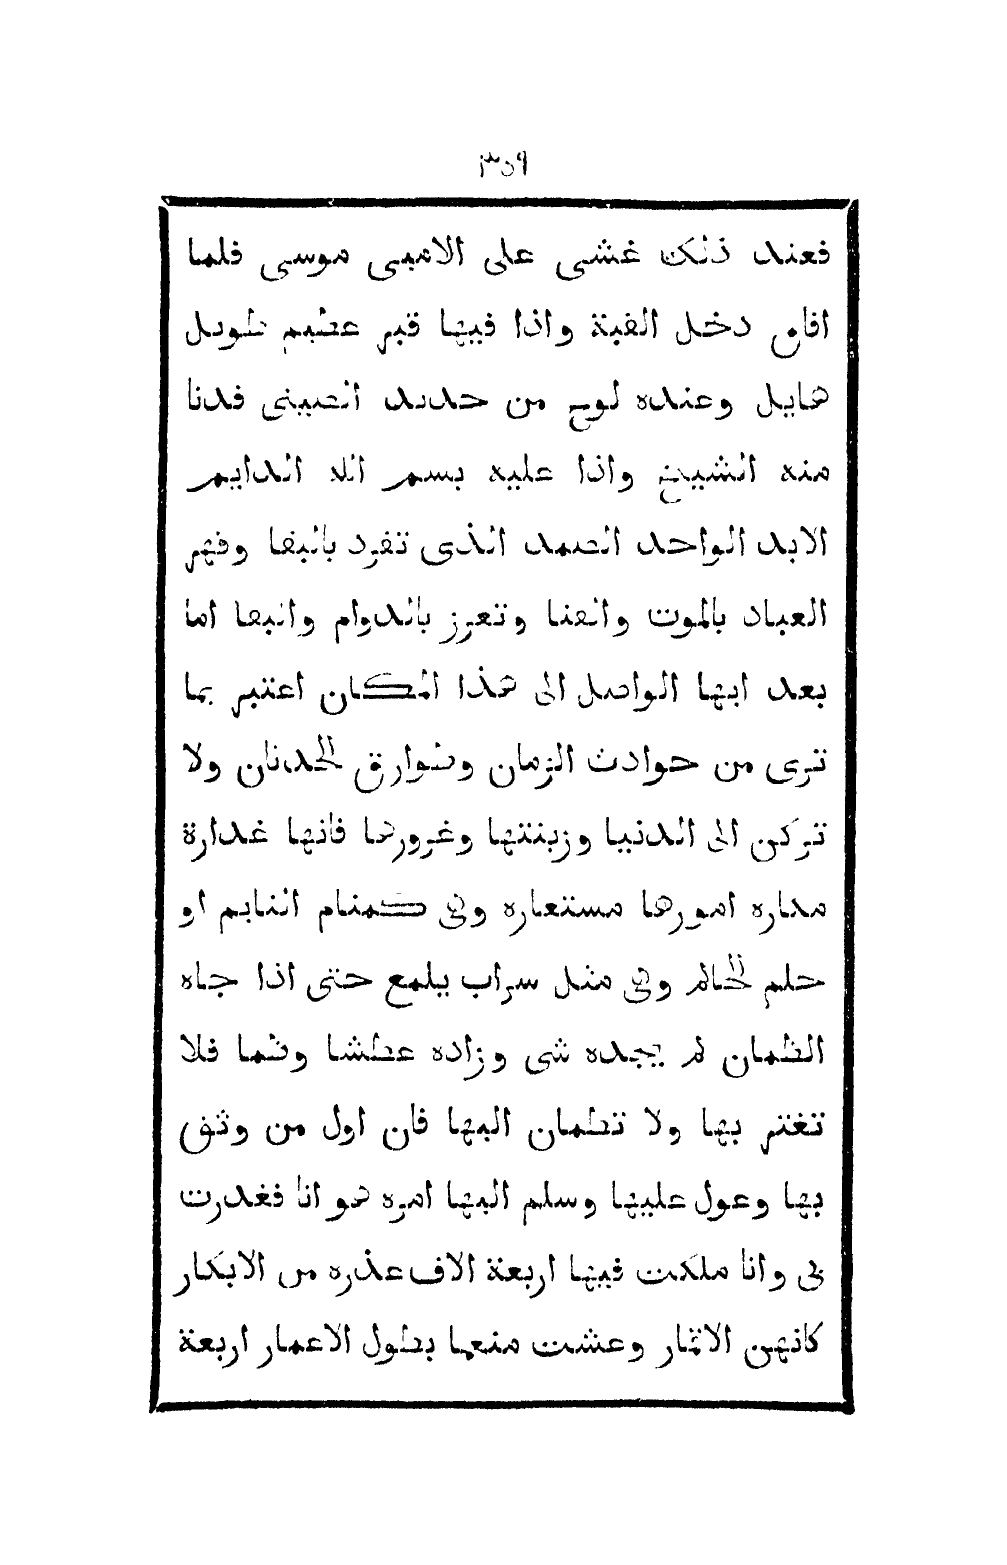 ٣٥٩
فعند ذلك غشى على الامير موسى فلما
افاق دخل القبة واذا فيها قبر عظيم طويل
هايل وعنده لوح من حديد الصينى فدنا
منه الشيخ واذا عليه بسم الله الدايم
الابد الواحد الصمد الذى تفرد بالبقا وقهر
العباد بالموت والفنا وتعزز بالدوام والبقا اما
بعد ايها الواصل الى هذا المكان اعتبر بما
ترى من حوادث الزمان وطوارق الحدثان ولا
تركن الى الدنيا وزينتها وغرورها فانها غدارة
مكاره امورها مستعاره وهى كمنام النايم او
حلم الحالم وهى مثل سراب يلمع حتى اذا جاه
الظمان لم يجده شى وزاده عطشا وظما فلا
تغتر بها ولا تطمان اليها فان اول من وثق
بها وعول عليها وسلم اليها امره هو انا فغدرت
بى وانا ملكت فيها اربعة الاف عذره من الابكار
كانهن الاقمار وعشت منعما بطول الاعمار اربعة